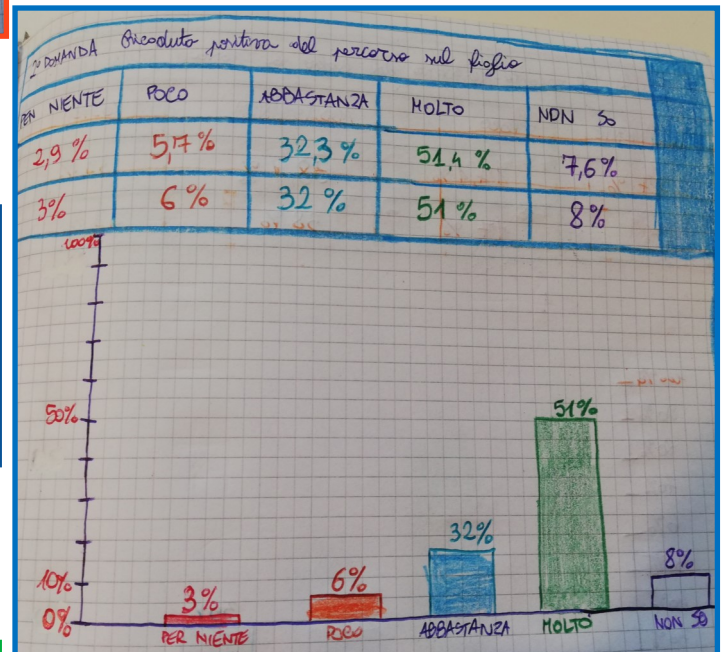 DOMANDA Ricaduta positiva del percorso sul figlio
PER NIENTE POCO ABBASTANZA MOLTO NON SO
2,9% 5,7% 32,3% 51,4% 7,6%
3% 6% 32% 51% 8%
100%
50%
51%
32%
10%
8%
6%
3%
0%
PER NIENTE POCO ABBASTANZA MOLTO NON SO